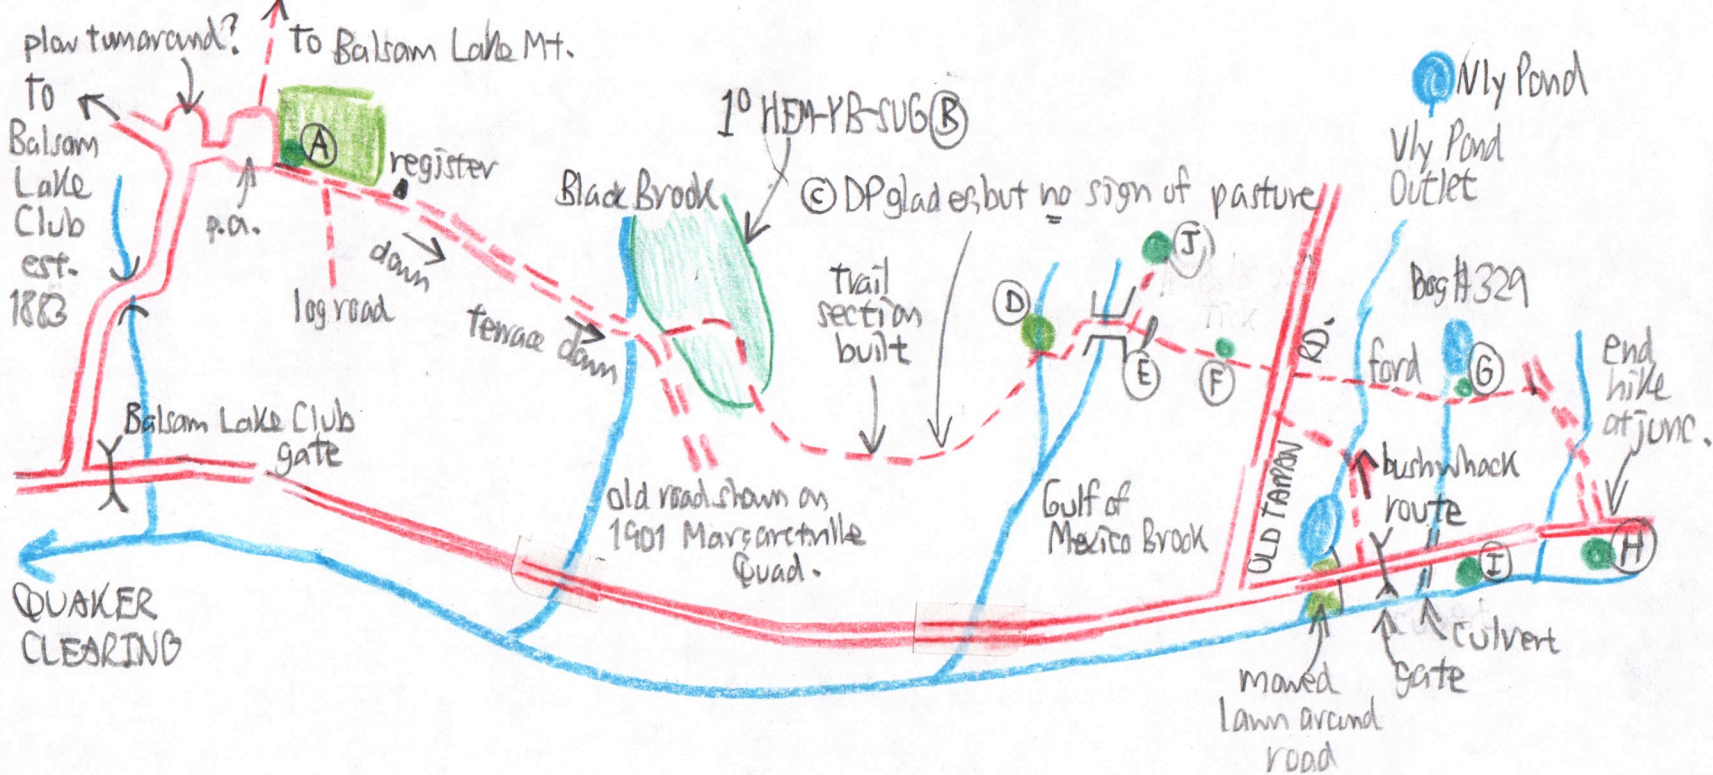 plow turnaround?
to Balsam Lake Mt.
to
Balsam
Lake
Club
est.
1883
A
register
p.a.
log road
down
terrace down
Black Brook
1° HEM-YB-SUG B
C DP glades, but no sign of pasture
trail
section
built
D
E
F
J
Vly Pond
Vly Pond
Outlet
Bog #329
G
ford
end
hike
at junc.
OLD TAPPAN
RD.
bushwhack
route
Balsam Lake Club
gate
old road shown on
1901 Margaretville
Quad.
Gulf of
Mexico Brook
I
H
QUAKER
CLEARING
mowed
lawn around
road
gate
culvert